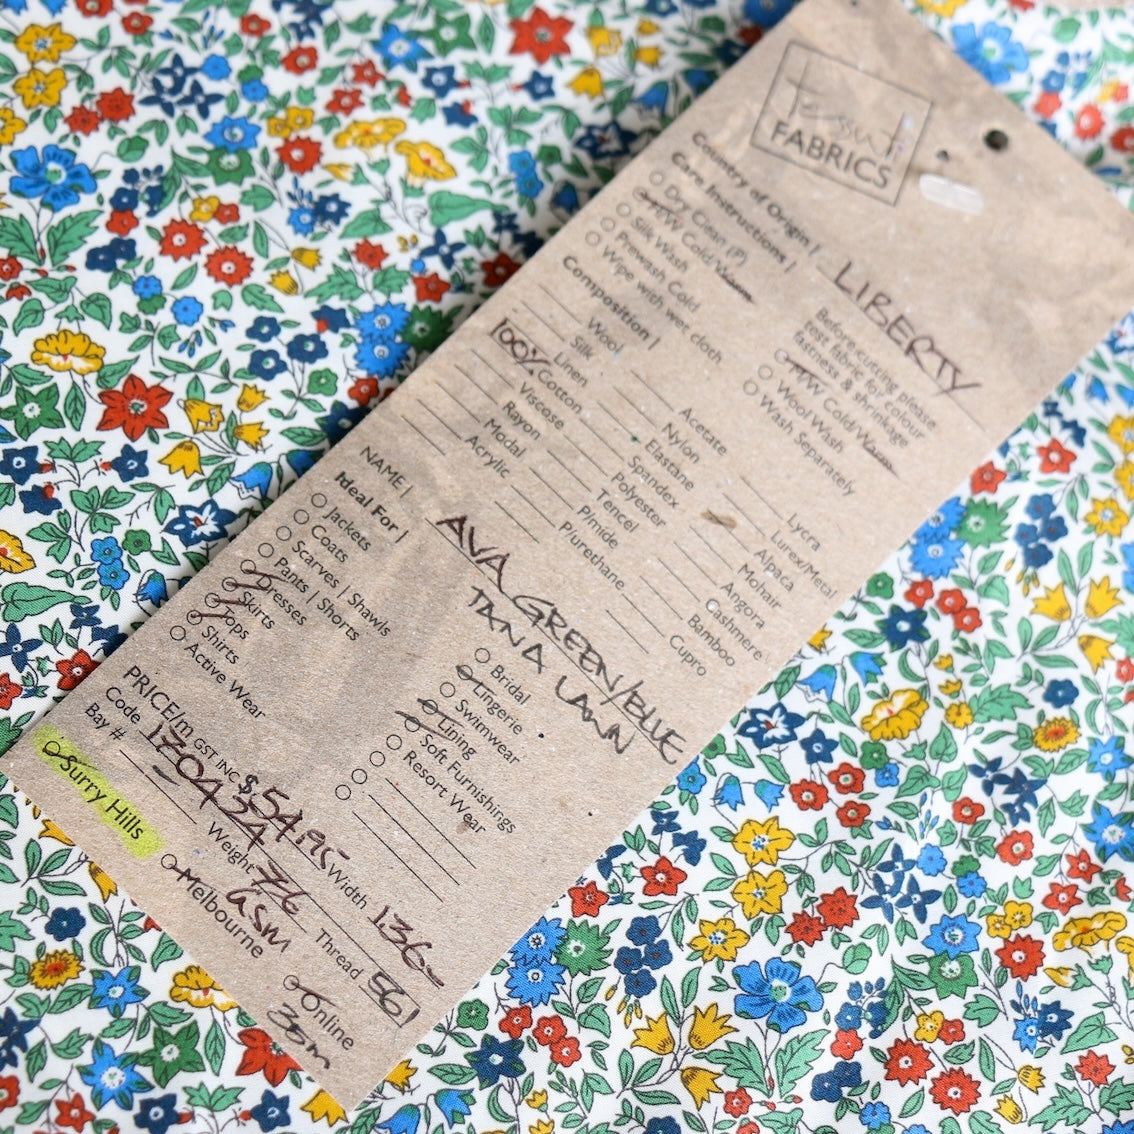 tessuti
FABRICS
Country of Origin | LIBERTY
Care Instructions |
Dry Clean (P)
H/W Cold/Warm
Silk Wash
Prewash Cold
Wipe with wet cloth
Before cutting please
test fabric for colour
fastness & shrinkage
M/W Cold/Warm
Wool Wash
Wash Separately
Composition |
Wool
Silk
Linen
100% Cotton
Viscose
Rayon
Modal
Acrylic
Acetate
Nylon
Elastane
Spandex
Polyester
Tencel
P/mide
P/urethane
Lycra
Lurex/Metal
Alpaca
Mohair
Angora
Cashmere
Bamboo
Cupro
NAME | AVA GREEN/BLUE
TANA LAWN
Ideal For |
Jackets
Coats
Scarves | Shawls
Pants | Shorts
Dresses
Skirts
Tops
Shirts
Active Wear
Bridal
Lingerie
Swimwear
Lining
Soft Furnishings
Resort Wear
PRICE/m GST INC $54.95 Width 136
Code 1204324 Weight 76 GSM Thread 561
Bay #
Surry Hills
Melbourne
Online
30m